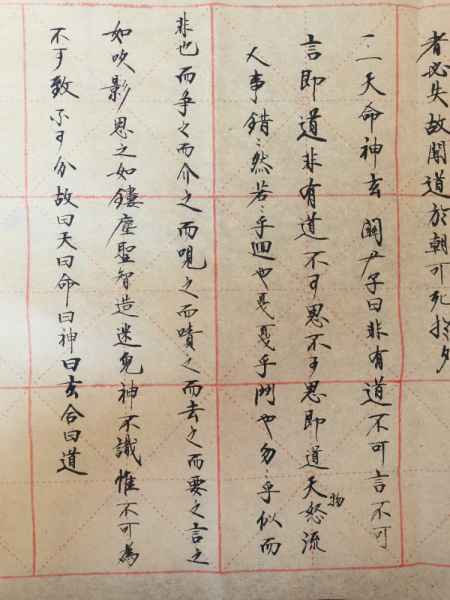 者必失故聞道於朝可死於夕
一一天命神玄 關尹子曰非有道不可言不可
言即道非有道不可思不可思即道天物怒流
人事錯〻然若〻乎迴也戛戛乎鬥也勿〻乎似而
非也而争之而介之而哯之而嘖之而去之而要之言之
如吹影思之如鏤塵聖智造迷鬼神不識惟不可為
不可致不可分故曰天曰命曰神曰玄合曰道